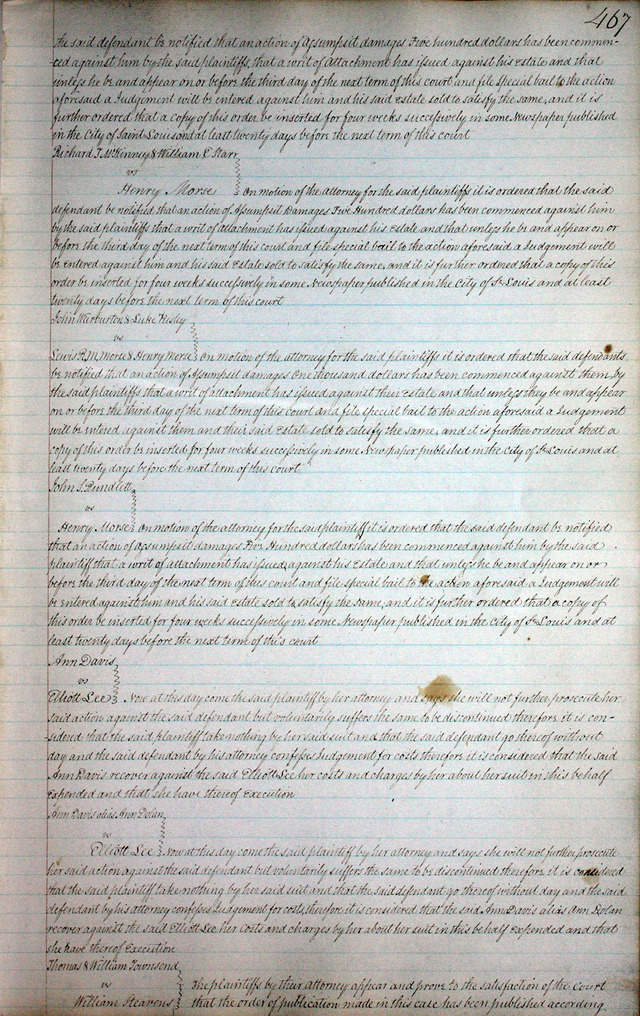 467
the said defendant be notified that an action of Assumpsit damages Five hundred dollars has been commen-
ced against him by the said plaintiffs, that a writ of Attachment has issued against his estate and that
unless he be and appear on or before the third day of the next term of this court and file special bail to the action
aforesaid a Judgement will be entered against him and his said Estate sold to satisfy the same, and it is
further ordered that a copy of this order be inserted for four weeks successively in some Newspaper published
in the City of Saint Louis and at least twenty days before the next term of this court
Richard T. McKinney & William C. Starr
vs
Henry Morse On motion of the attorney for the said plaintiffs it is ordered that the said
defendant be notified that an action of Assumpsit Damages Five Hundred dollars has been commenced against him
by the said plaintiffs that a writ of attachment has issued against his Estate and that unless he be and appear on or
before the third day of the next term of this court and file special bail to the action aforesaid a Judgement will
be Entered against him and his said Estate sold to satisfy the same, and it is further ordered that a copy of this
order be inserted for four weeks successively in some Newspaper published in the City of St Louis and at least
twenty days before the next term of this court
John Warburton & Luke
vs
Lewis Morse & Henry Morse On motion of the attorney for the said plaintiffs it is ordered that the said defendants
be notified that an action of Assumpsit damages One thousand dollars has been commenced against them by
the said plaintiffs that a writ of attachment has issued against their Estate and that unless they be and appear
on or before the third day of the next term of this court and file special bail to the action aforesaid a Judgement
will be entered against them and their said Estate sold to satisfy the same, and it is further ordered that a
copy of this order be inserted for four weeks successively in some Newspaper published in the City of St Louis and at
least twenty days before the next term of this court
John S.
vs
Henry Morse On motion of the attorney for the said plaintiff it is ordered that the said defendant be notified
that an action of Assumpsit damages Five Hundred dollars has been commenced against him by the said
plaintiff that a writ of attachment has issued against his Estate and that unless he be and appear on or
before the third day of the next term of this court and file special bail to the action aforesaid a Judgement will
be entered against him and his said Estate sold to satisfy the same, and it is further ordered that a copy of
this order be inserted for four weeks successively in some Newspaper published in the City of St Louis and at
least twenty days before the next term of this court
Ann Davis
vs
Elliott Lee Now at this day come the said plaintiff by her attorney and says she will not further prosecute her
said action against the said defendant but voluntarily suffers the same to be discontinued therefore it is con-
sidered that the said plaintiff take nothing by her said suit and that the said defendant go thereof without
day and the said defendant by his attorney confesses Judgement for costs therefore it is considered that the said
Ann Davis recover against the said Elliott Lee her costs and charges by her about her suit in this behalf
Expended and that she have thereof Execution
Ann Davis alias Ann Dolan
vs
Elliott Lee Now at this day come the said plaintiff by her attorney and says she will not further prosecute
her said action against the said defendant but voluntarily suffers the same to be discontinued therefore it is considered
that the said plaintiff take nothing by her said suit and that the said defendant go thereof without day and the said
defendant by his attorney confesses Judgement for costs, therefore it is considered that the said Ann Davis alias Ann Dolan
recover against the said Elliott Lee her costs and charges by her about her suit in this behalf Expended and that
she have thereof Execution
Thomas & William Townsend
vs
William Steavens The plaintiffs by their attorney appear and prove to the satisfaction of the Court
that the order of publication made in this case has been published according